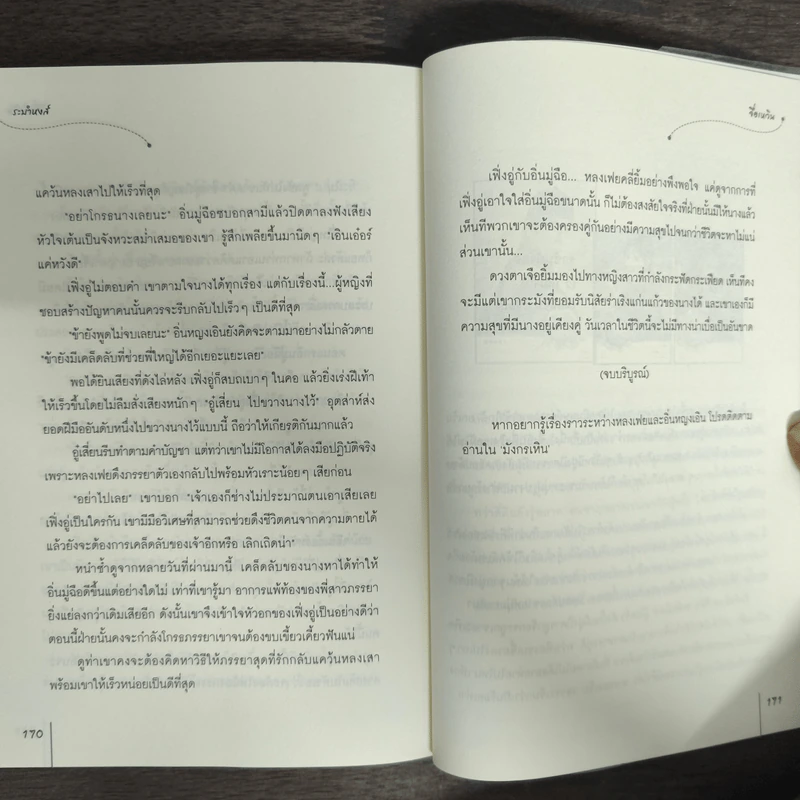 ระบำหงส์
แคว้นหลงเสาไปให้เร็วที่สุด
"อย่าโกรธนางเลยนะ" อิ่นมู่ฉือซบอกสามีแล้วปิดตาลงฟังเสียง
หัวใจเต้นเป็นจังหวะสม่ำเสมอของเขา รู้สึกเพลียขึ้นมานิดๆ "เอินเอ๋อร์
แค่หวังดี"
เฟิ่งอู่ไม่ตอบคำ เขาตามใจนางได้ทุกเรื่อง แต่กับเรื่องนี้...ผู้หญิงที่
ชอบสร้างปัญหาคนนั้นควรจะรีบกลับไปเร็วๆ เป็นดีที่สุด
"ข้ายังพูดไม่จบเลยนะ" อิ่นหญงเอินยังคิดจะตามมาอย่างไม่กลัวตาย
"ข้ายังมีเคล็ดลับที่ช่วยพี่ใหญ่ได้อีกเยอะแยะเลย"
พอได้ยินเสียงที่ดังไล่หลัง เฟิ่งอู่ก็สบถเบาๆ ในคอ แล้วยิ่งเร่งฝีเท้า
ให้เร็วขึ้นโดยไม่ลืมสั่งเสียงหนักๆ "อู๋เสี่ยน ไปขวางนางไว้" อุตส่าห์ส่ง
ยอดฝีมืออันดับหนึ่งไปขวางนางไว้แบบนี้ ถือว่าให้เกียรติกันมากแล้ว
อู๋เสี่ยนรีบทำตามคำบัญชา แต่ทว่าเขาไม่มีโอกาสได้ลงมือปฏิบัติจริง
เพราะหลงเฟยดึงภรรยาตัวเองกลับไปพร้อมหัวเราะน้อยๆ เสียก่อน
"อย่าไปเลย" เขาบอก "เจ้าเองก็ช่างไม่ประมาณตนเอาเสียเลย
เฟิ่งอู่เป็นใครกัน เขามีมือวิเศษที่สามารถช่วยดึงชีวิตคนจากความตายได้
แล้วยังจะต้องการเคล็ดลับของเจ้าอีกหรือ เลิกเถิดน่า"
หนำซ้ำดูจากหลายวันที่ผ่านมานี้ เคล็ดลับของนางหาได้ทำให้
อิ่นมู่ฉือดีขึ้นแต่อย่างใดไม่ เท่าที่เขารู้มา อาการแพ้ท้องของพี่สาวภรรยา
ยิ่งแย่ลงกว่าเดิมเสียอีก ดังนั้นเขาจึงเข้าใจหัวอกของเฟิ่งอู่เป็นอย่างดีว่า
ตอนนี้ฝ่ายนั้นคงจะกำลังโกรธภรรยาเขาจนต้องขบเขี้ยวเคี้ยวฟันแน่
ดูท่าเขาคงจะต้องคิดหาวิธีให้ภรรยาสุดที่รักกลับแคว้นหลงเสา
พร้อมเขาให้เร็วหน่อยเป็นดีที่สุด
170
จื่อเหวิน
เฟิ่งอู่กับอิ่นมู่ฉือ... หลงเฟยคลี่ยิ้มอย่างพึงพอใจ แค่ดูจากการที่
เฟิ่งอู่เอาใจใส่อิ่นมู่ฉือขนาดนั้น ก็ไม่ต้องสงสัยใจจริงที่ฝ่ายนั้นมีให้นางแล้ว
เห็นทีพวกเขาจะต้องครองคู่กันอย่างมีความสุขไปจนกว่าชีวิตจะหาไม่แน่
ส่วนเขานั้น...
ดวงตาเจือยิ้มมองไปทางหญิงสาวที่กำลังกระฟัดกระเฟียด เห็นทีคง
จะมีแต่เขากระมังที่ยอมรับนิสัยร่าเริงแก่นแก้วของนางได้ และเขาเองก็มี
ความสุขที่มีนางอยู่เคียงคู่ วันเวลาในชีวิตนี้จะไม่มีทางน่าเบื่อเป็นอันขาด
(จบบริบูรณ์)
หากอยากรู้เรื่องราวระหว่างหลงเฟยและอิ่นหญงเอิน โปรดติดตาม
อ่านใน 'มังกรเหิน'
171